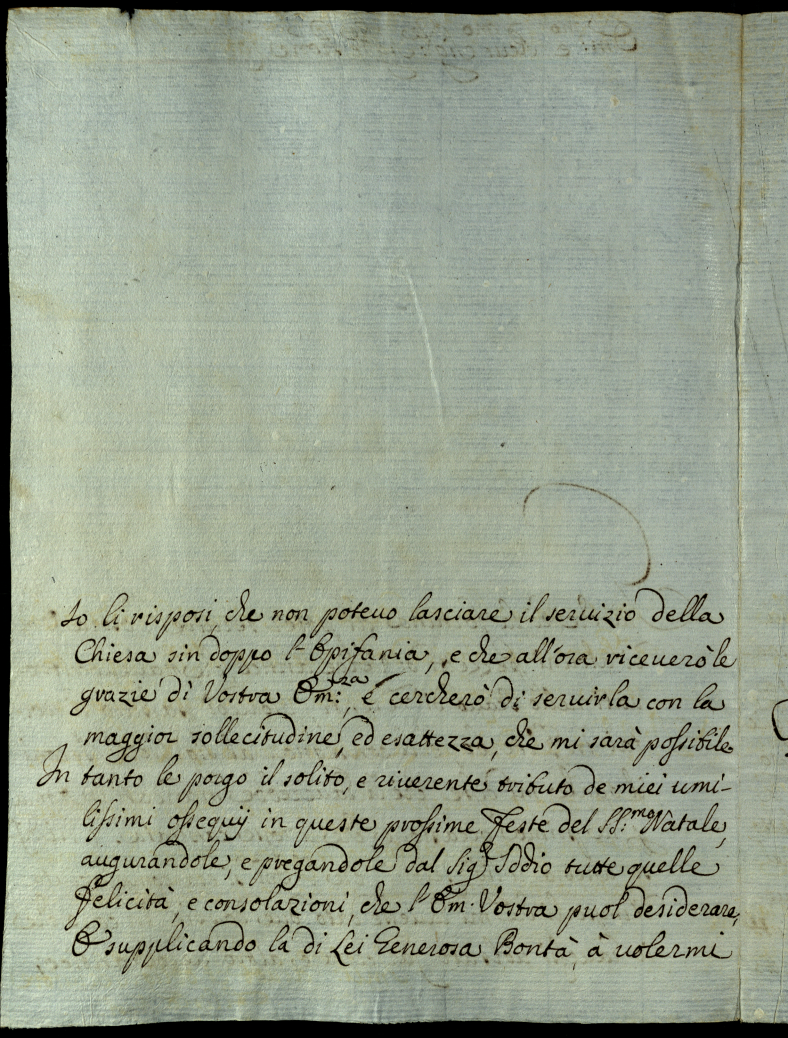 Io li risposi, che non potevo lasciare il servizio della
Chiesa sin doppo l'Epifania, e che all'ora riceverò le
grazie di Vostra Em:za, e cercherò di servirla con la
maggior sollecitudine, ed esattezza, che mi sarà possibile.
In tanto le porgo il solito, e riverente tributo de miei umi-
lissimi ossequij in queste prossime Feste del SS:mo Natale,
augurandole, e pregandole dal Sig.r Iddio tutte quelle
Felicità, e consolazioni, che l'Em. Vostra puol desiderare,
E supplicando la di Lei Generosa Bontà, à volermi